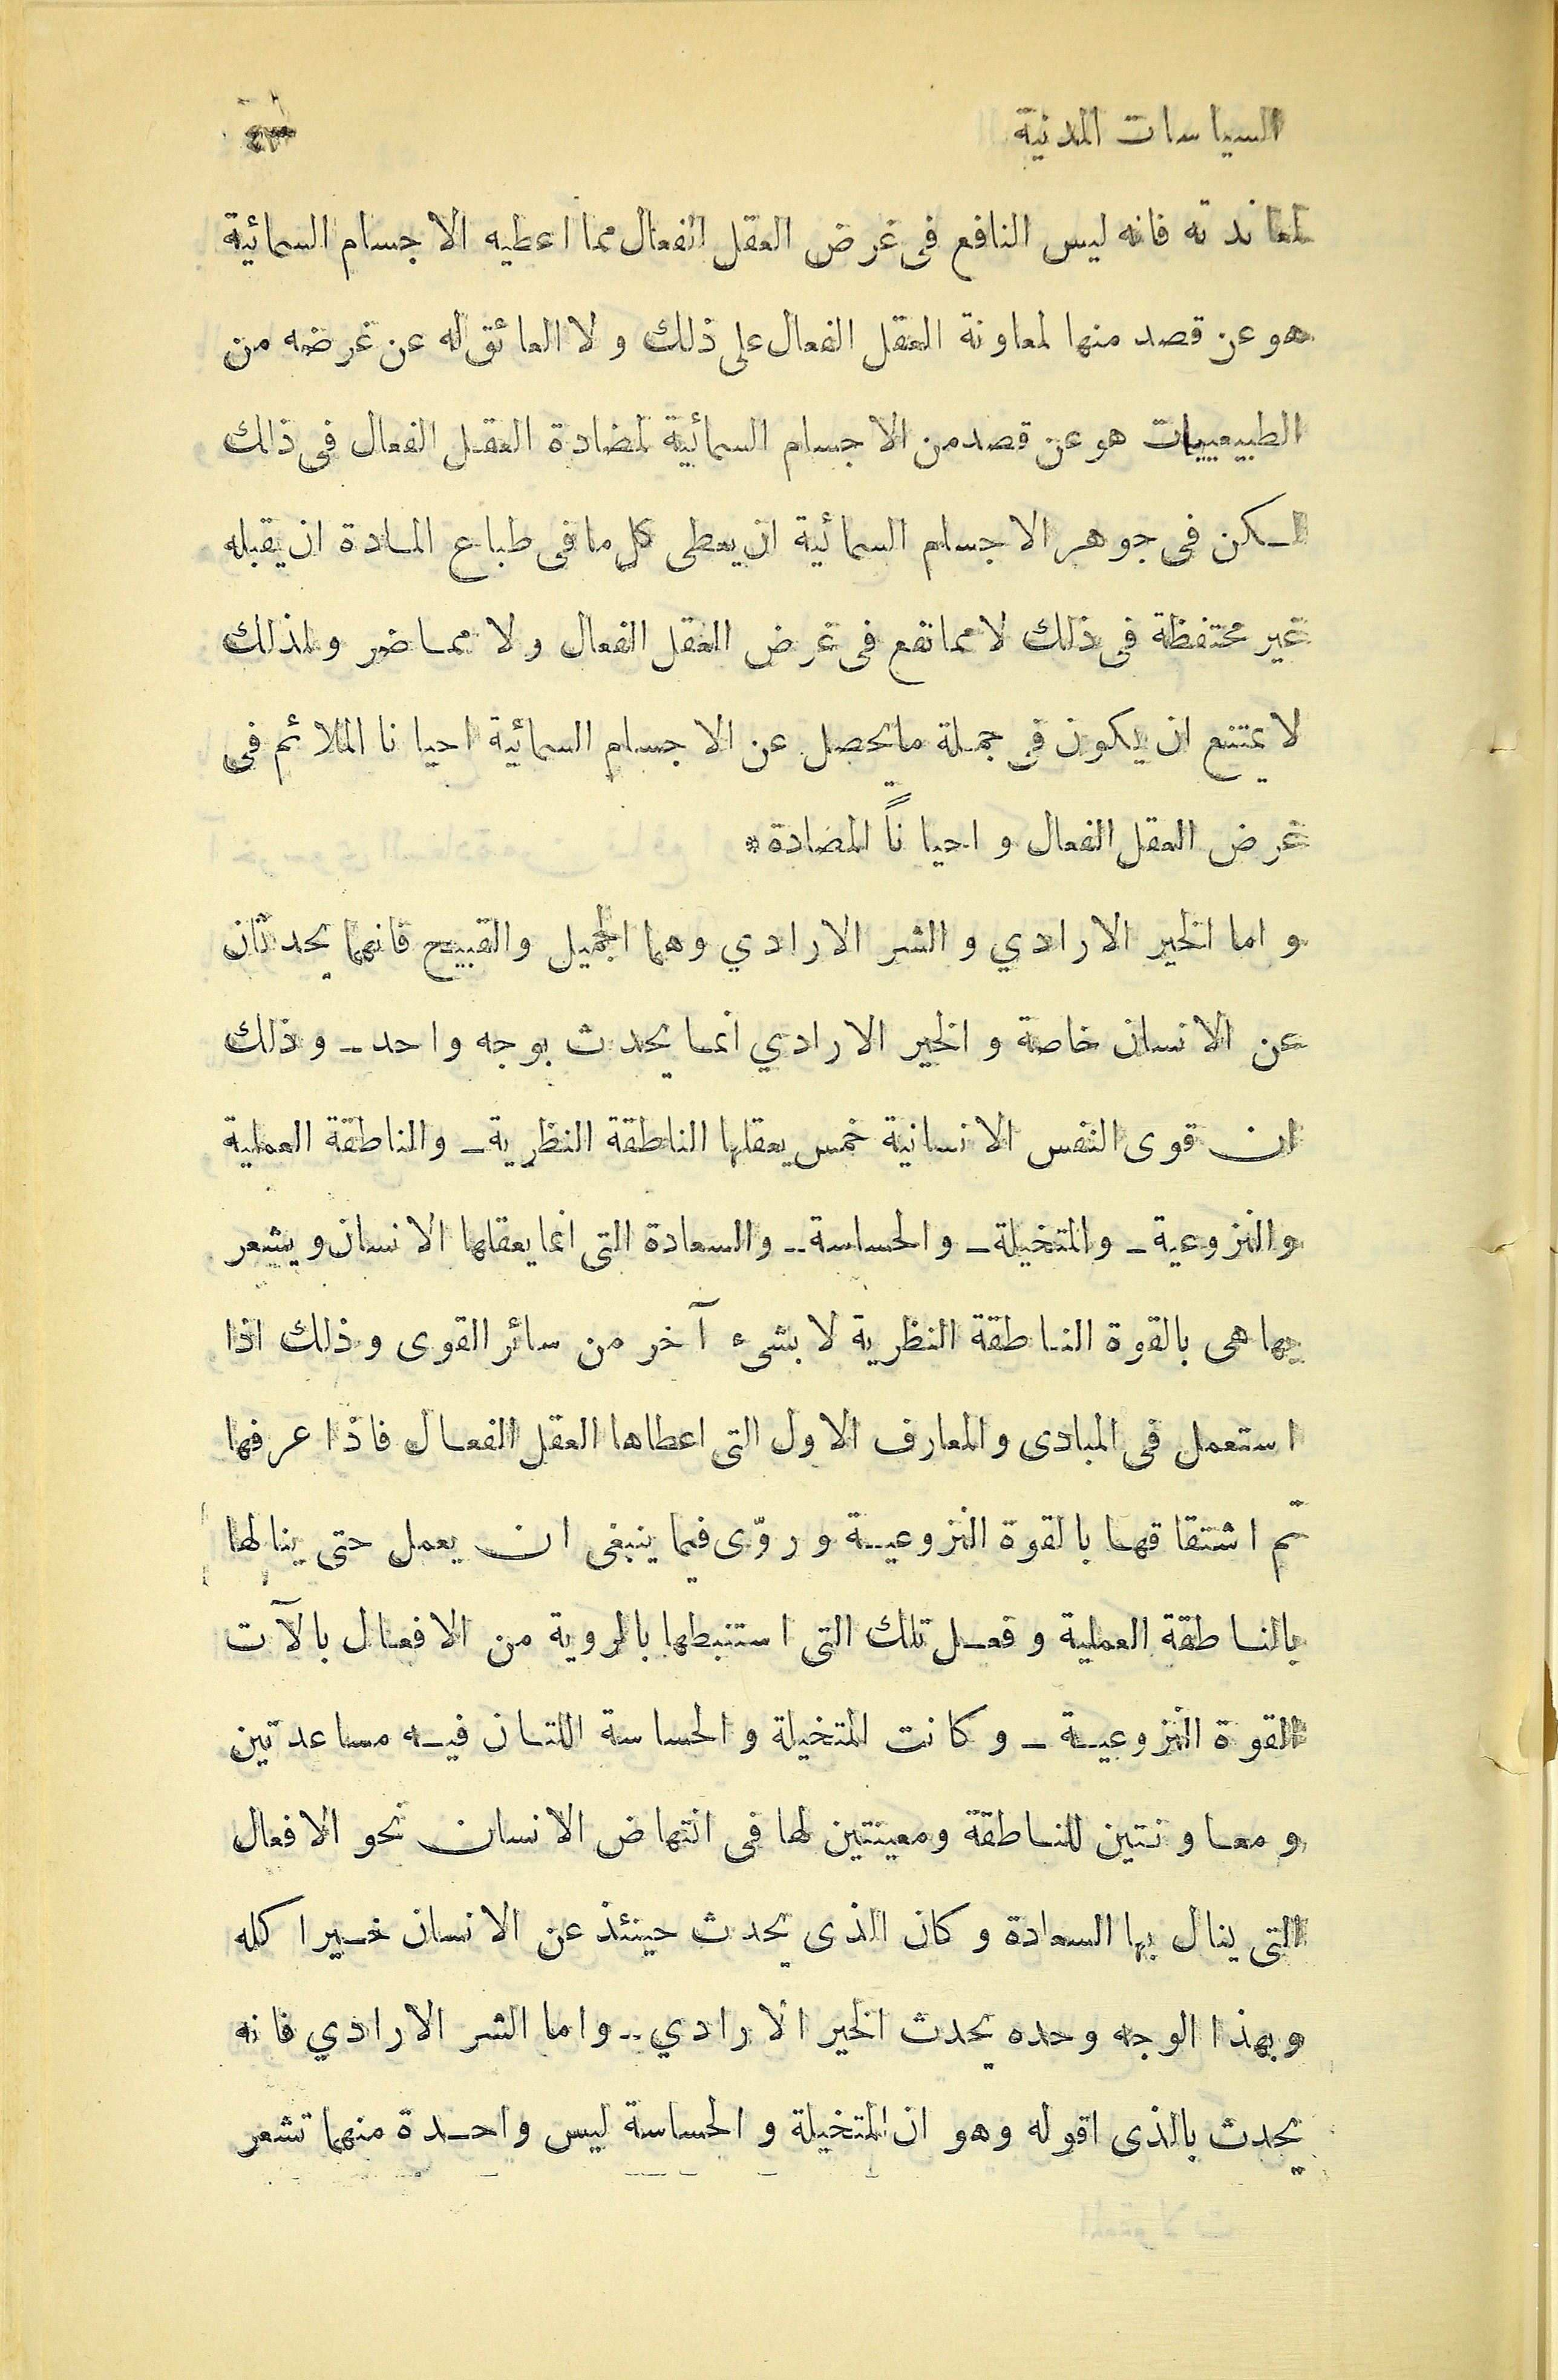 السياسات المدنية ٤٣
لمعاندته فانه ليس النافع فى غرض العقل الفعال مما اعطيه الاجسام السمائية
هو عن قصد منها لمعاونة العقل الفعال على ذلك ولا العائق له عن غرضه من
الطبيعييات هو عن قصد من الاجسام السمائية لمضادة العقل الفعال فى ذلك
لكن فى جوهر الاجسام السمائية ان يعطى كل ما فى طباع المادة ان يقبله
غير محتفظة فى ذلك لا مما نفع فى غرض العقل الفعال ولا مما ضر ولذلك
لا يمتنع ان يكون فى جملة ما يحصل عن الاجسام السمائية احيانا الملائم فى
غرض العقل الفعال واحياناً المضادة *
واما الخير الارادي والشر الارادي وهما الجميل والقبيح فانهما يحدثان
عن الانسان خاصة والخير الارادي انما يحدث بوجه واحد ــ وذلك
ان قوى النفس الانسانية خمس يعقلها الناطقة النظرية ــ والناطقة العملية
والنزوعية ــ والمتخيلة ــ والحساسة ــ والسعادة التى انما يعقلها الانسان ويشعر
بها هى بالقوة الناطقة النظرية لا بشىء آخر من سائر القوى وذلك اذا
استعمل فى المبادى والمعارف الاول التى اعطاها العقل الفعال فاذا عرفها
ثم اشتقاقها بالقوة النزوعية وروّى فيما ينبغى ان يعمل حتى ينالها
بالناطقة العملية وفعل تلك التى استنبطها بالروية من الافعال بالآت
القوة النزوعية ــ وكانت المتخيلة والحساسة اللتان فيه مساعدتين
ومعاونتين للناطقة ومعينتين لها فى انتهاض الانسان نحو الافعال
التى ينال بها السعادة وكان الذى يحدث حينئذ عن الانسان خيرا كله
وبهذا الوجه وحده يحدث الخير الارادي ــ واما الشر الارادي فانه
يحدث بالذى اقوله وهو ان المتخيلة والحساسة ليس واحدة منهما تشعر